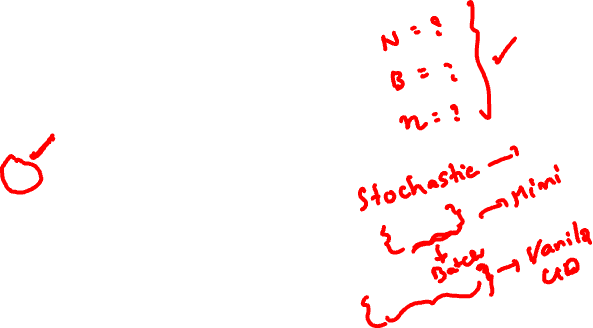 N = ?
B = ?
n = ?
Stochastic →
{ } → Mini
Batch
{ } → Vanila
GD